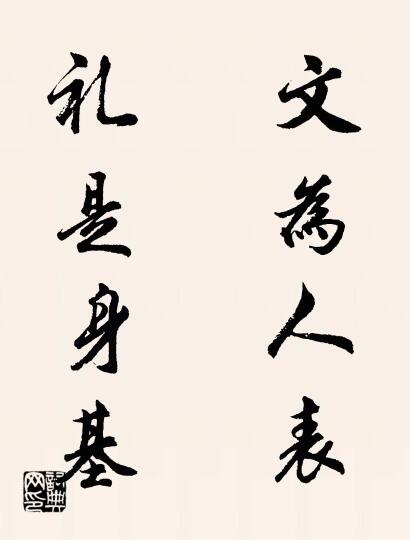 文為人表
礼是身基